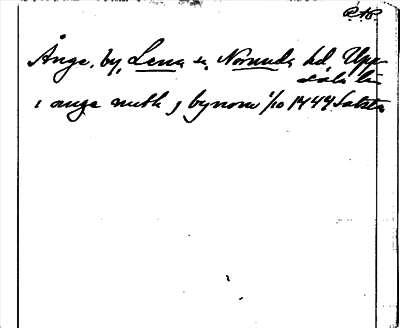 Ånge, by, Lena sn, Norunda hd, Upp-
sala län
i ange meth j bynom 1/10 1444 Salsta